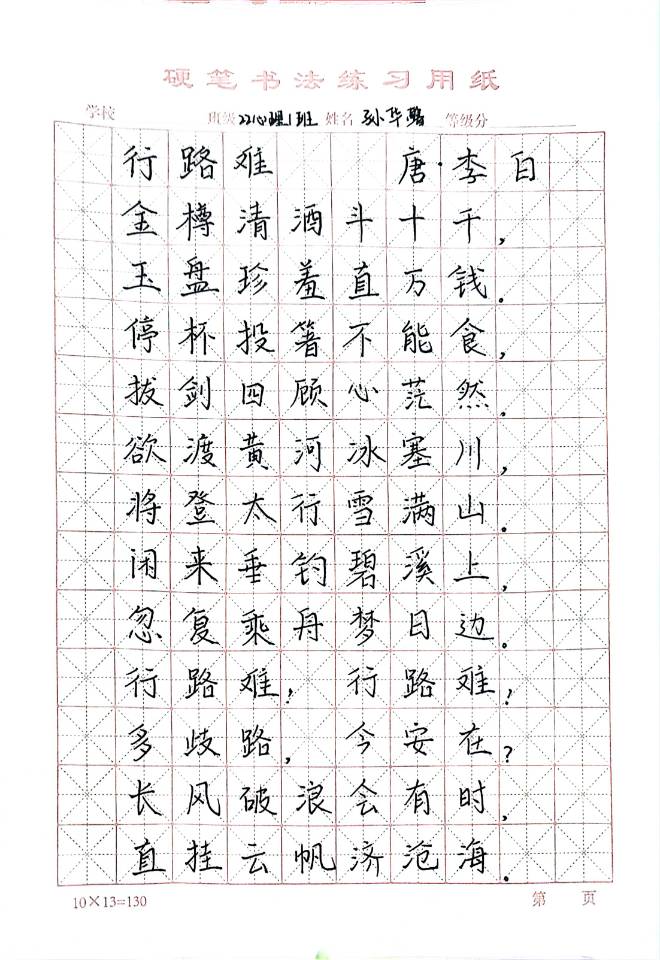 硬笔书法练习用纸
学校 班级 22心理1班 姓名 孙华 等级分
行路难 唐·李白
金樽清酒斗十千,
玉盘珍羞直万钱.
停杯投箸不能食,
拔剑四顾心茫然.
欲渡黄河冰塞川,
将登太行雪满山.
闲来垂钓碧溪上,
忽复乘舟梦日边。
行路难!行路难!
多歧路,今安在?
长风破浪会有时,
直挂云帆济沧海.
10×13=130 第 页